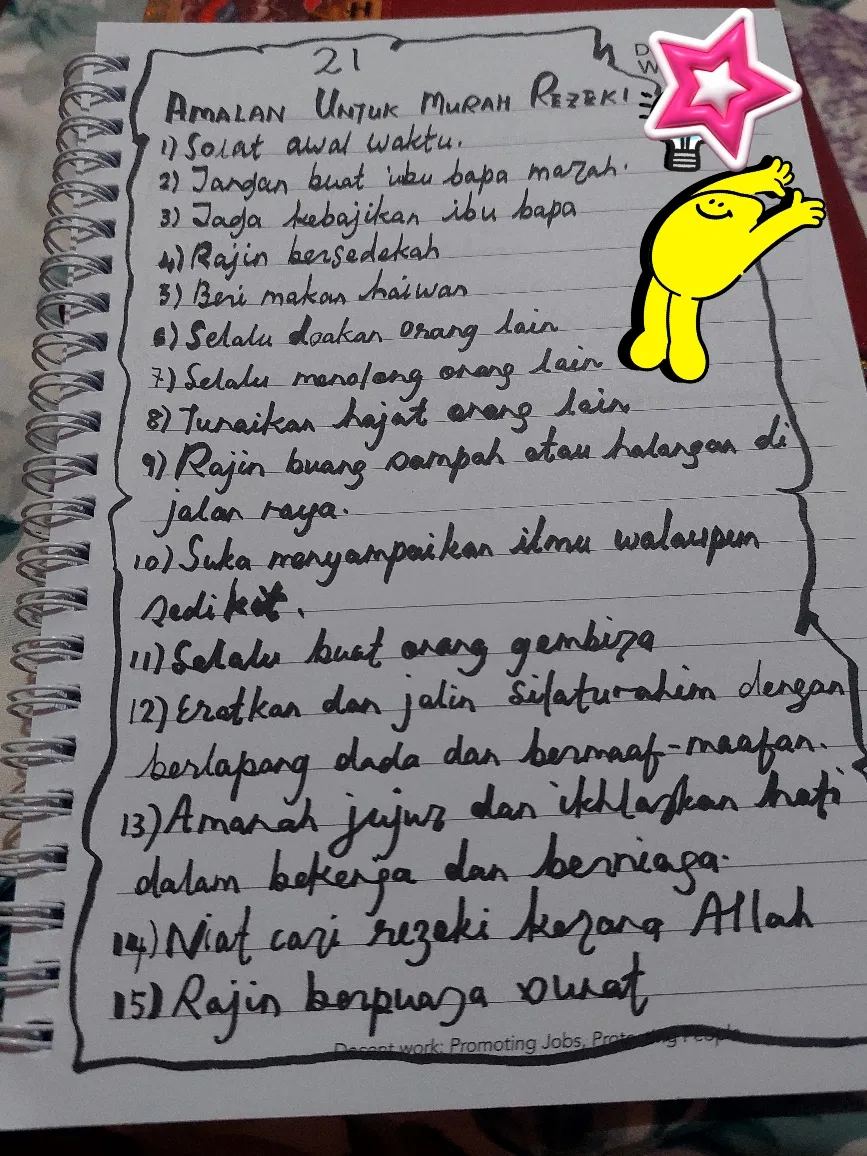 21
AMALAN UNTUK MURAH REZEKI
1) Solat awal waktu.
2) Jangan buat ibu bapa marah.
3) Jaga kebajikan ibu bapa
4) Rajin bersedekah
5) Beri makan haiwan
6) Selalu doakan orang lain
7) Selalu menolong orang lain
8) Tunaikan hajat orang lain
9) Rajin buang sampah atau halangan di
jalan raya.
10) Suka menyampaikan ilmu walaupun
sedikit.
11) Selalu buat orang gembira
12) Eratkan dan jalin silaturahim dengan
berlapang dada dan bermaaf-maafan.
13) Amanah jujur dan ikhlaskan hati
dalam bekerja dan berniaga.
14) Niat cari rezeki kerana Allah
15) Rajin berpuasa sunat
Decent work: Promoting Jobs, Protecting People